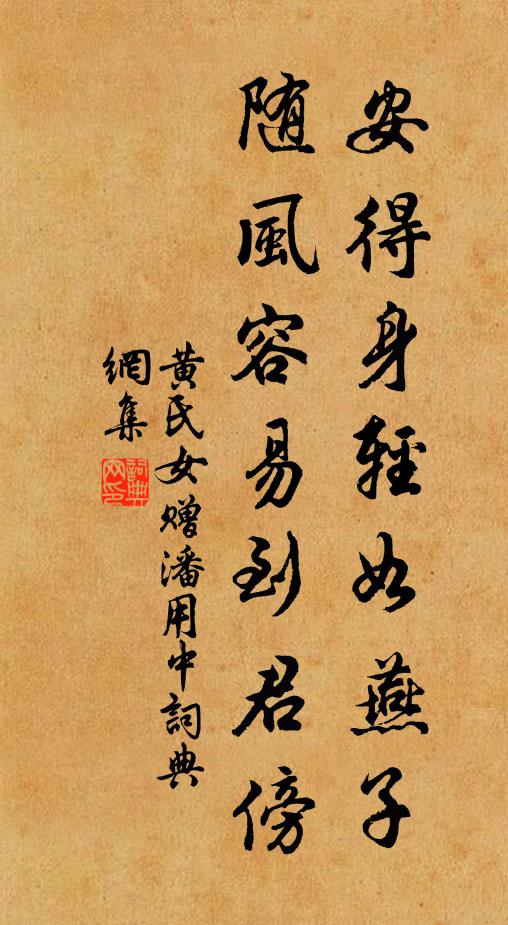 安得身輕如燕子
随風容易到君傍
黄氏女赠潘用中詞典
網集
詞典网印